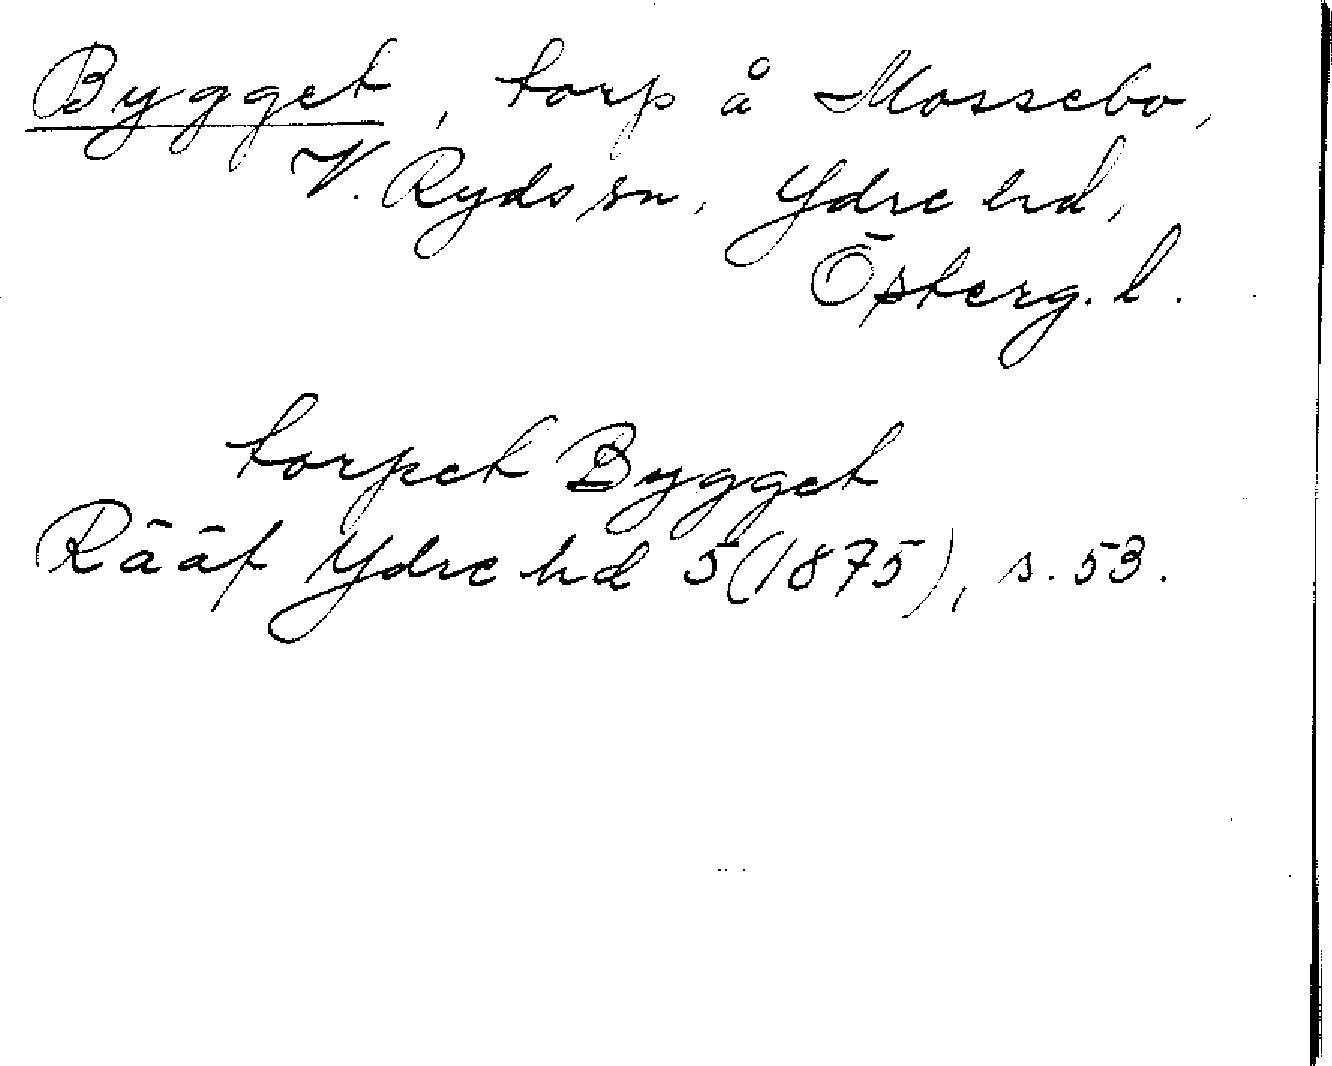 Bygget, torp å Mossebo,
V. Ryds sn, Ydre hd,
Österg. l.
torpet Bygget
Rääf Ydre hd 5 (1875), s. 53.